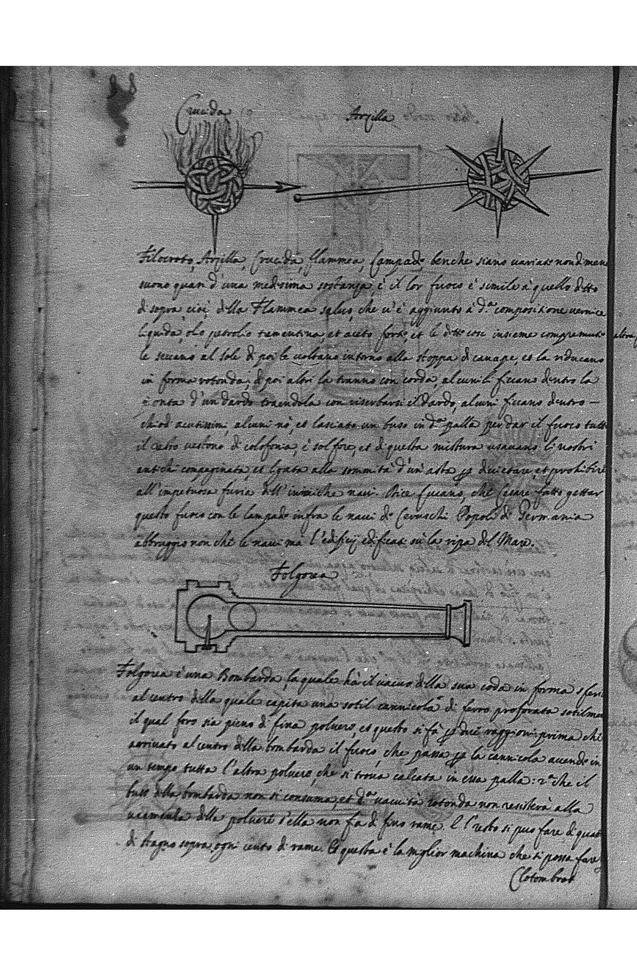 Crucida Arzilla
Filocroto, Arzilla, Crucida, Flammea, Lampad. benche siano variat. nondimen
suono quasi d'una medesima sostanza, è il lor fuoco è simile a quello ditto
di sopra cioj della Flammea saluo, che vi è aggiunto à d.ª compositione vernice
liquida, olo petrolo tramentina, et aceto forte, et le ditte cose insieme
le seccano al sole di poi le voltano intorno alla stoppa di canape, et la riducano
in forma rotonda, di poi altri la tranno con corda, alcuni li ficano dentro la
ponta d'un dardo traendola con riserbarsi il Dardo, alcuni ficano dentro –
chiod. acutissimi alcuni nò, et lasciato un buso in d.ª palla per dar il fuoco tutt
il resto vestono di colofonia, è solfore, et di questa mistura usauano li nostri
antichi compaginata, et ligata alla sommità d'un'asta p diuietare, et prohibire
all'impetuosa furia dell'inimiche naui. Dice Lucano, che Cesare fatto gettar
questo fuoco con le lampade infra le naui de Popoli di Germania
abbruggio non che le naui ma l'edifitij edificati sù la ripa del Mare.
Folgorea
Folgorea è una Bombarda, la quale hà il vacuo della sua coda in forma sferi
al centro della quale capita una sotil cannicola di ferro proforata sotilmen
il qual foro sia pieno di fina poluere, et questo si fà p due raggioni: prima che
arriuato al centro della bombarda il fuoco che passa p la cannicola accende in
un tempo tutta l'altra poluere, che si troua calcata in essa palla: 2.ª che il
tutt. della bombarda non si consuma, et d.ª vacuità rotonda non resisterà alla
della poluere s'ella non fia di fino rame. Il resto si può fare di quat
di stagno sopra ogni cento di rame. Et questa è la miglior machina che si possa fare
Clotombrot